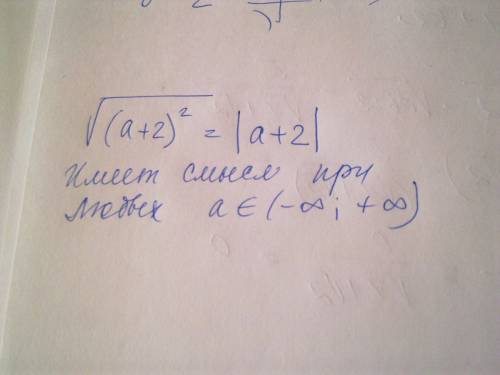 √(a+2)² = |a+2|
Имеет смысл при
любых a ∈ (-∞; +∞)